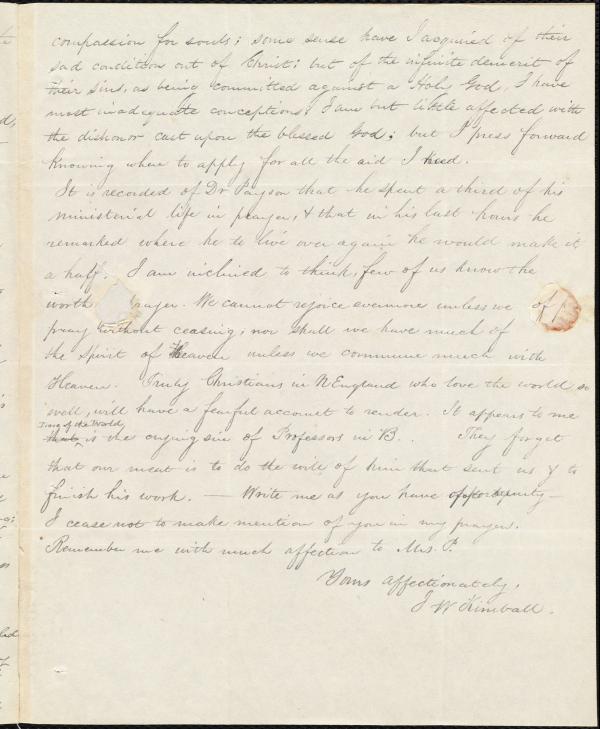 compassion for souls; some sense have I acquired of their
sad condition out of Christ; but of the infinite demerit of
their sins, as being committed against a Holy God, I have
most inadequate conceptions; I am but little affected with
the dishonor cast upon the blessed God; but I press forward
knowing where to apply for all the aid I need.
It is recorded of Dr Payson that he spent a third of his
ministerial life in prayer, & that in his last hours he
remarked where he to live over again he would make it
a half. I am inclined to think, few of us know the
worth rayer. We cannot rejoice evermore unless we of p
pray without ceasing; nor shall we have much of
the Spirit of Heaven unless we commune much with
Heaven. Truly Christians in N England who love the world so
well, will have a fearful account to render. It appears to me
Love of the World
that is the crying sin of Professors in B. . They forget
that our meat is to do the will of him that sent us & to
finish his work. — Write me as you have opportunity —
I cease not to make mention of you in my prayers.
Remember me with much affection to Mrs. P.
Yours affectionately,
J W Kimball.